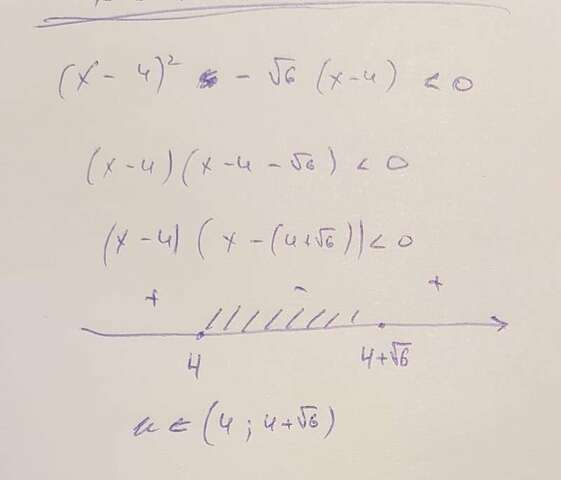 (x - 4)² - √6 (x-4) < 0
(x-4)(x-4-√6) < 0
(x-4)(x-(4+√6)) < 0
+ - +
4 4+√6
x ∈ (4; 4+√6)